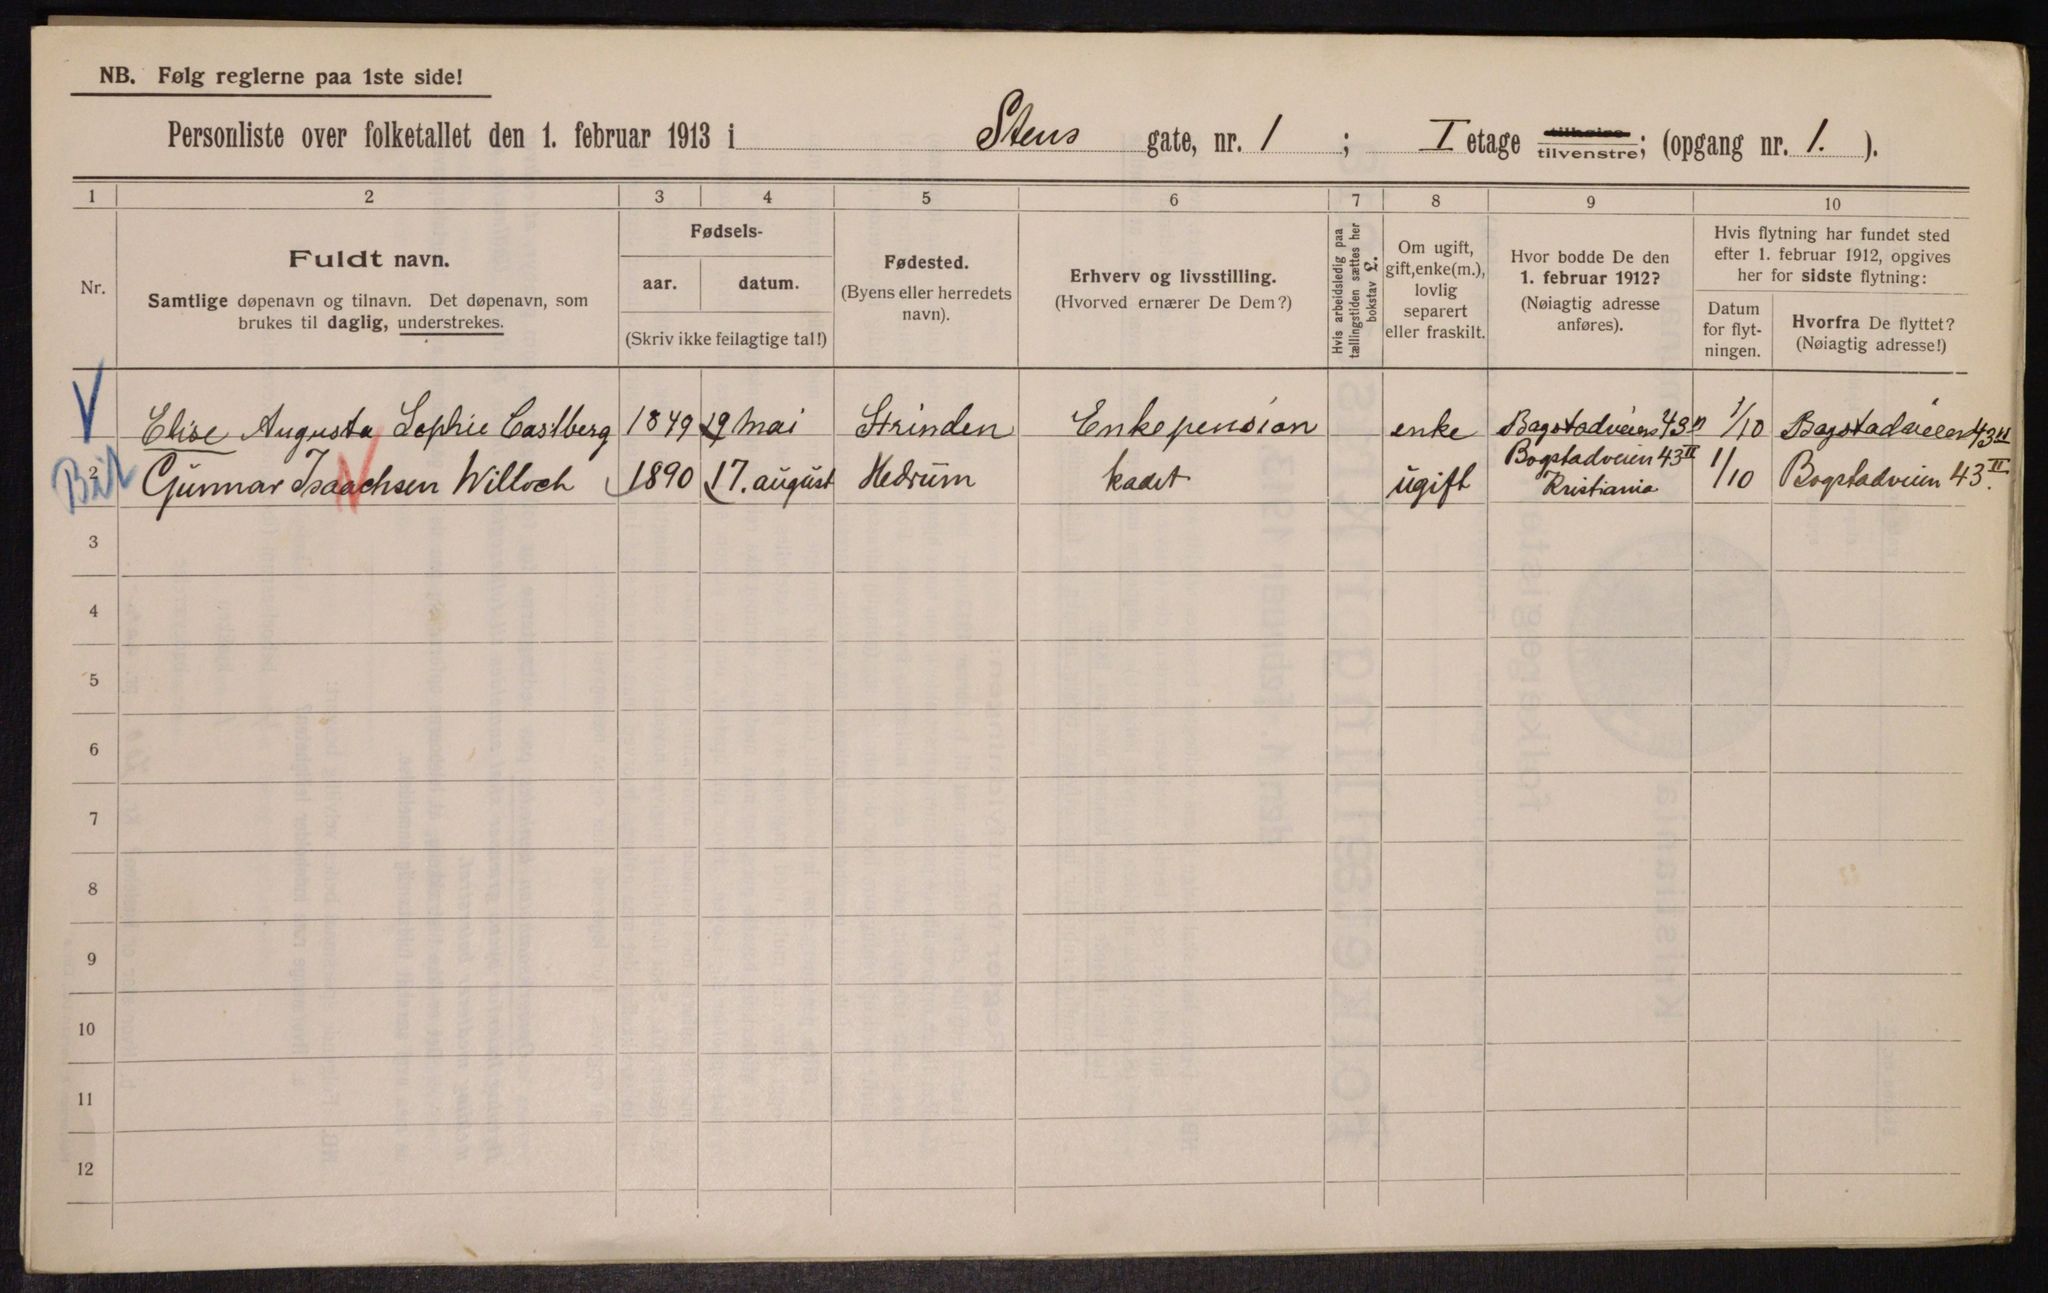 NB. Følg reglerne paa 1ste side!
Personliste over folketallet den 1. februar 1913 i Stens gate, nr. 1 ; I etage tilhøire tilvenstre; (opgang nr. 1. ).
1 2 3 4 5 6 7 8 9 10
Nr.
Fuldt navn.
Samtlige døpenavn og tilnavn. Det døpenavn, som
brukes til daglig, understrekes.
Fødsels-
aar. datum.
(Skriv ikke feilagtige tal!)
Fødested.
(Byens eller herredets
navn).
Erhverv og livsstilling.
(Hvorved ernærer De Dem?)
Hvis arbeidsledig paa
tællingstiden sættes her
bokstav L.
Om ugift,
gift, enke(m.),
lovlig
separert
eller fraskilt.
Hvor bodde De den
1. februar 1912?
(Nøiagtig adresse
anføres).
Hvis flytning har fundet sted
efter 1. februar 1912, opgives
her for sidste flytning:
Datum
for flyt-
ningen.
Hvorfra De flyttet?
(Nøiagtig adresse!)
Elise Augusta Sophie Castberg 1849 19 mai Strinden Enkepension enke Bogstadveien 43 II 1/10 Bogstadveien 43 II
2 Gunnar Isaachsen Willoch 1890 17. august Hedrum kadet ugift Bogstadveien 43 II Kristiania 1/10 Bogstadveien 43 II.
3
4
5
6
7
8
9
10
11
12